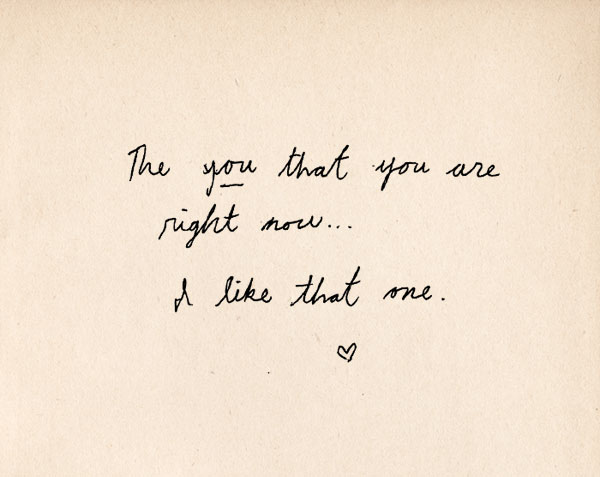 The you that you are
right now...
I like that one.
♡